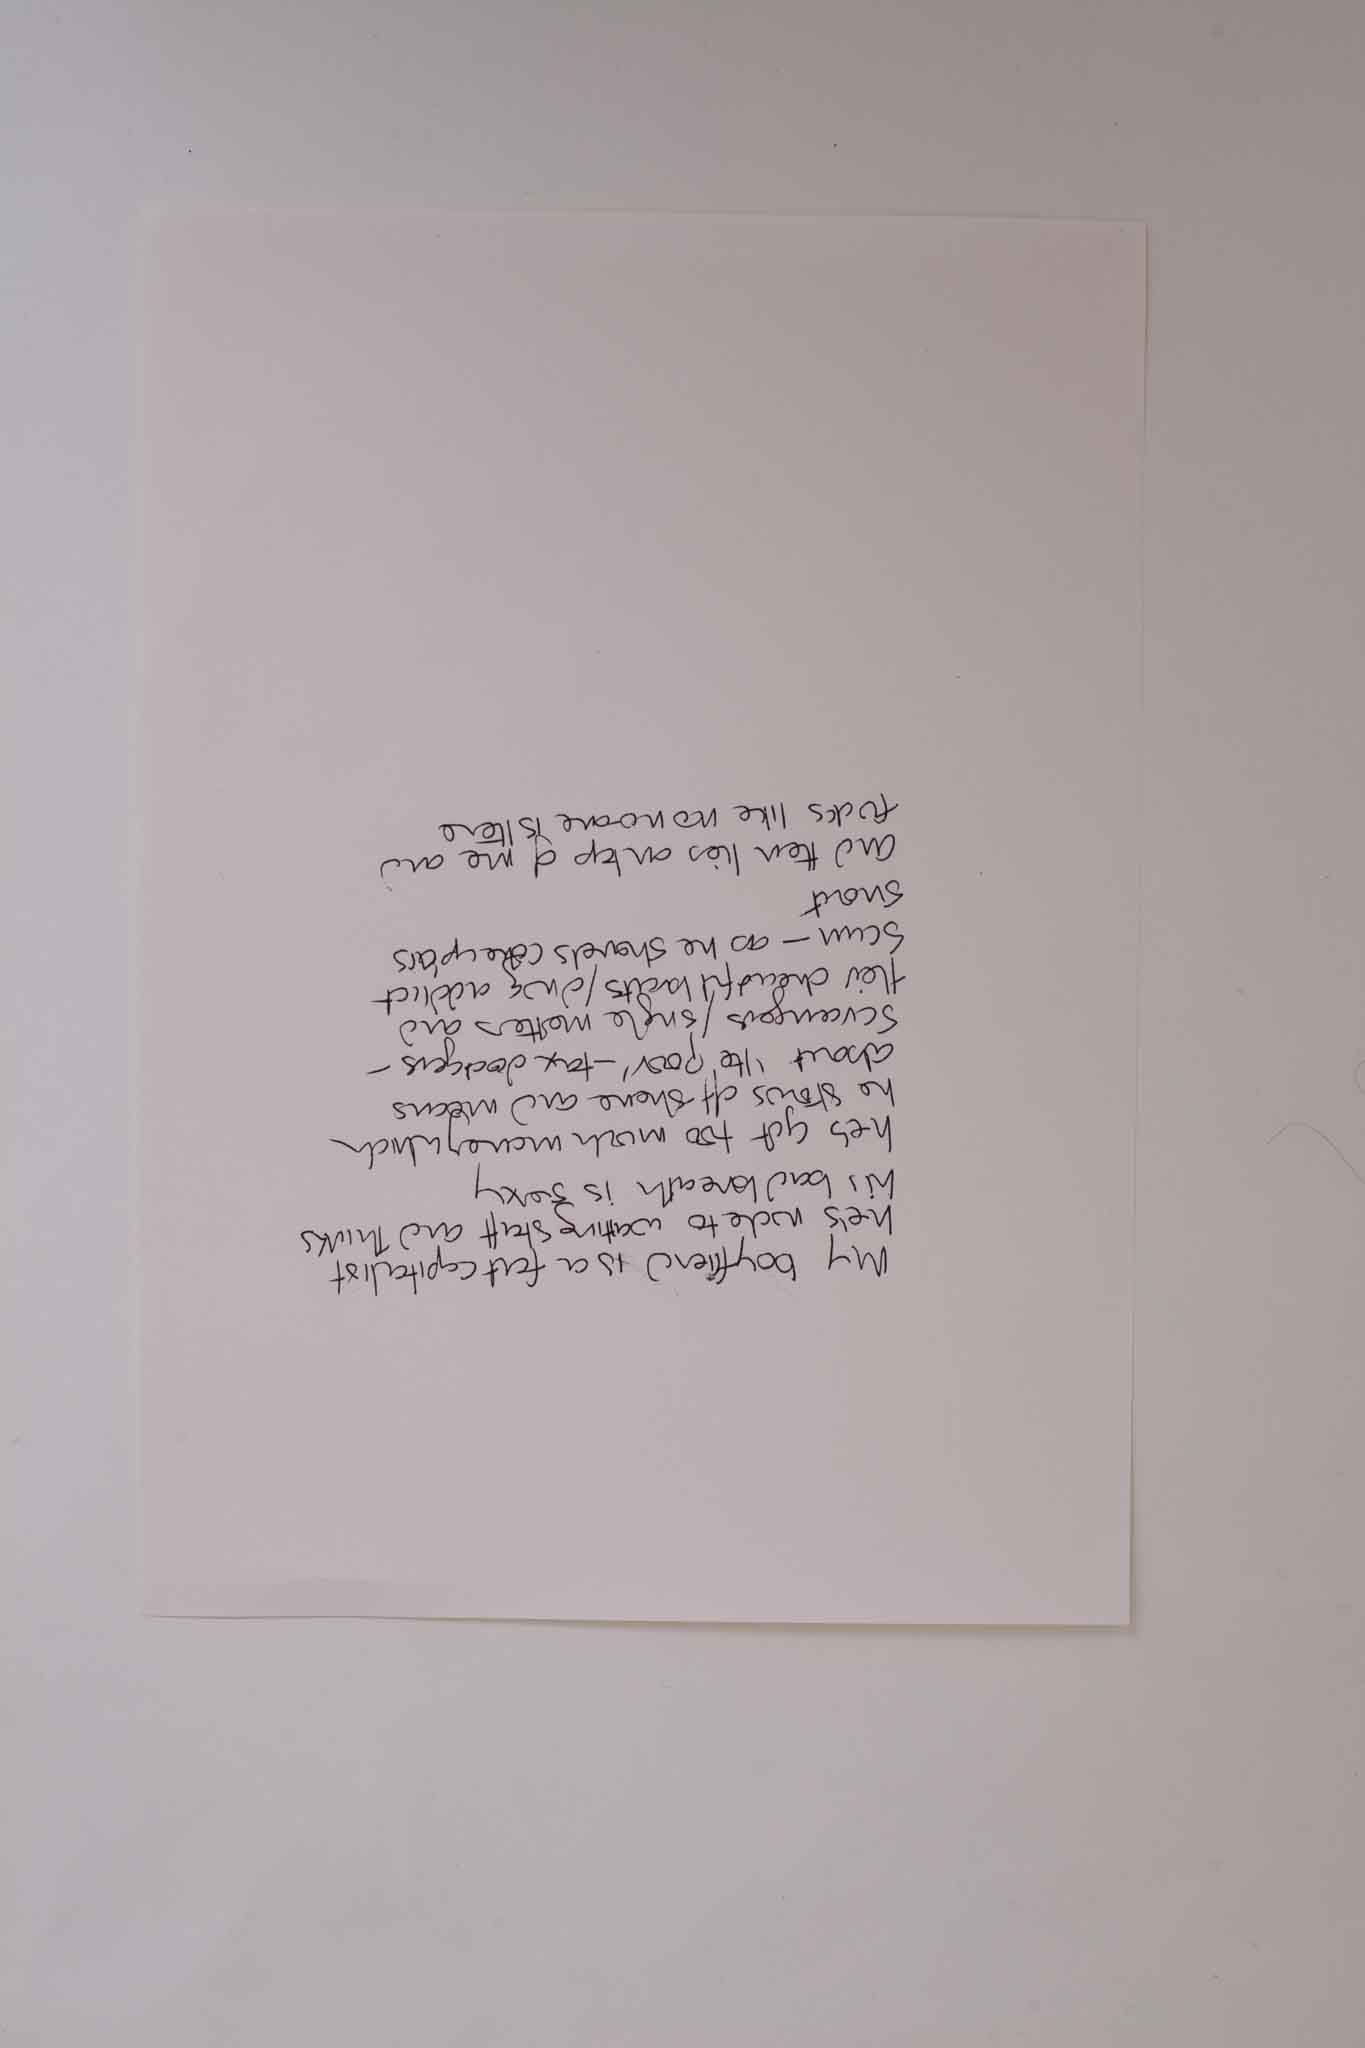 My boyfriend is a fat capitalist
he's rude to waiting staff and thinks
his bad breath is sexy
he's got too much money which
he shows off shame and moans
about 'the poor' – tax dodgers –
scroungers / single mothers and
their dreadful brats / drug addict
scum – as he shovels coke up his
snout
and then lies on top of me and
fucks like no noone is there